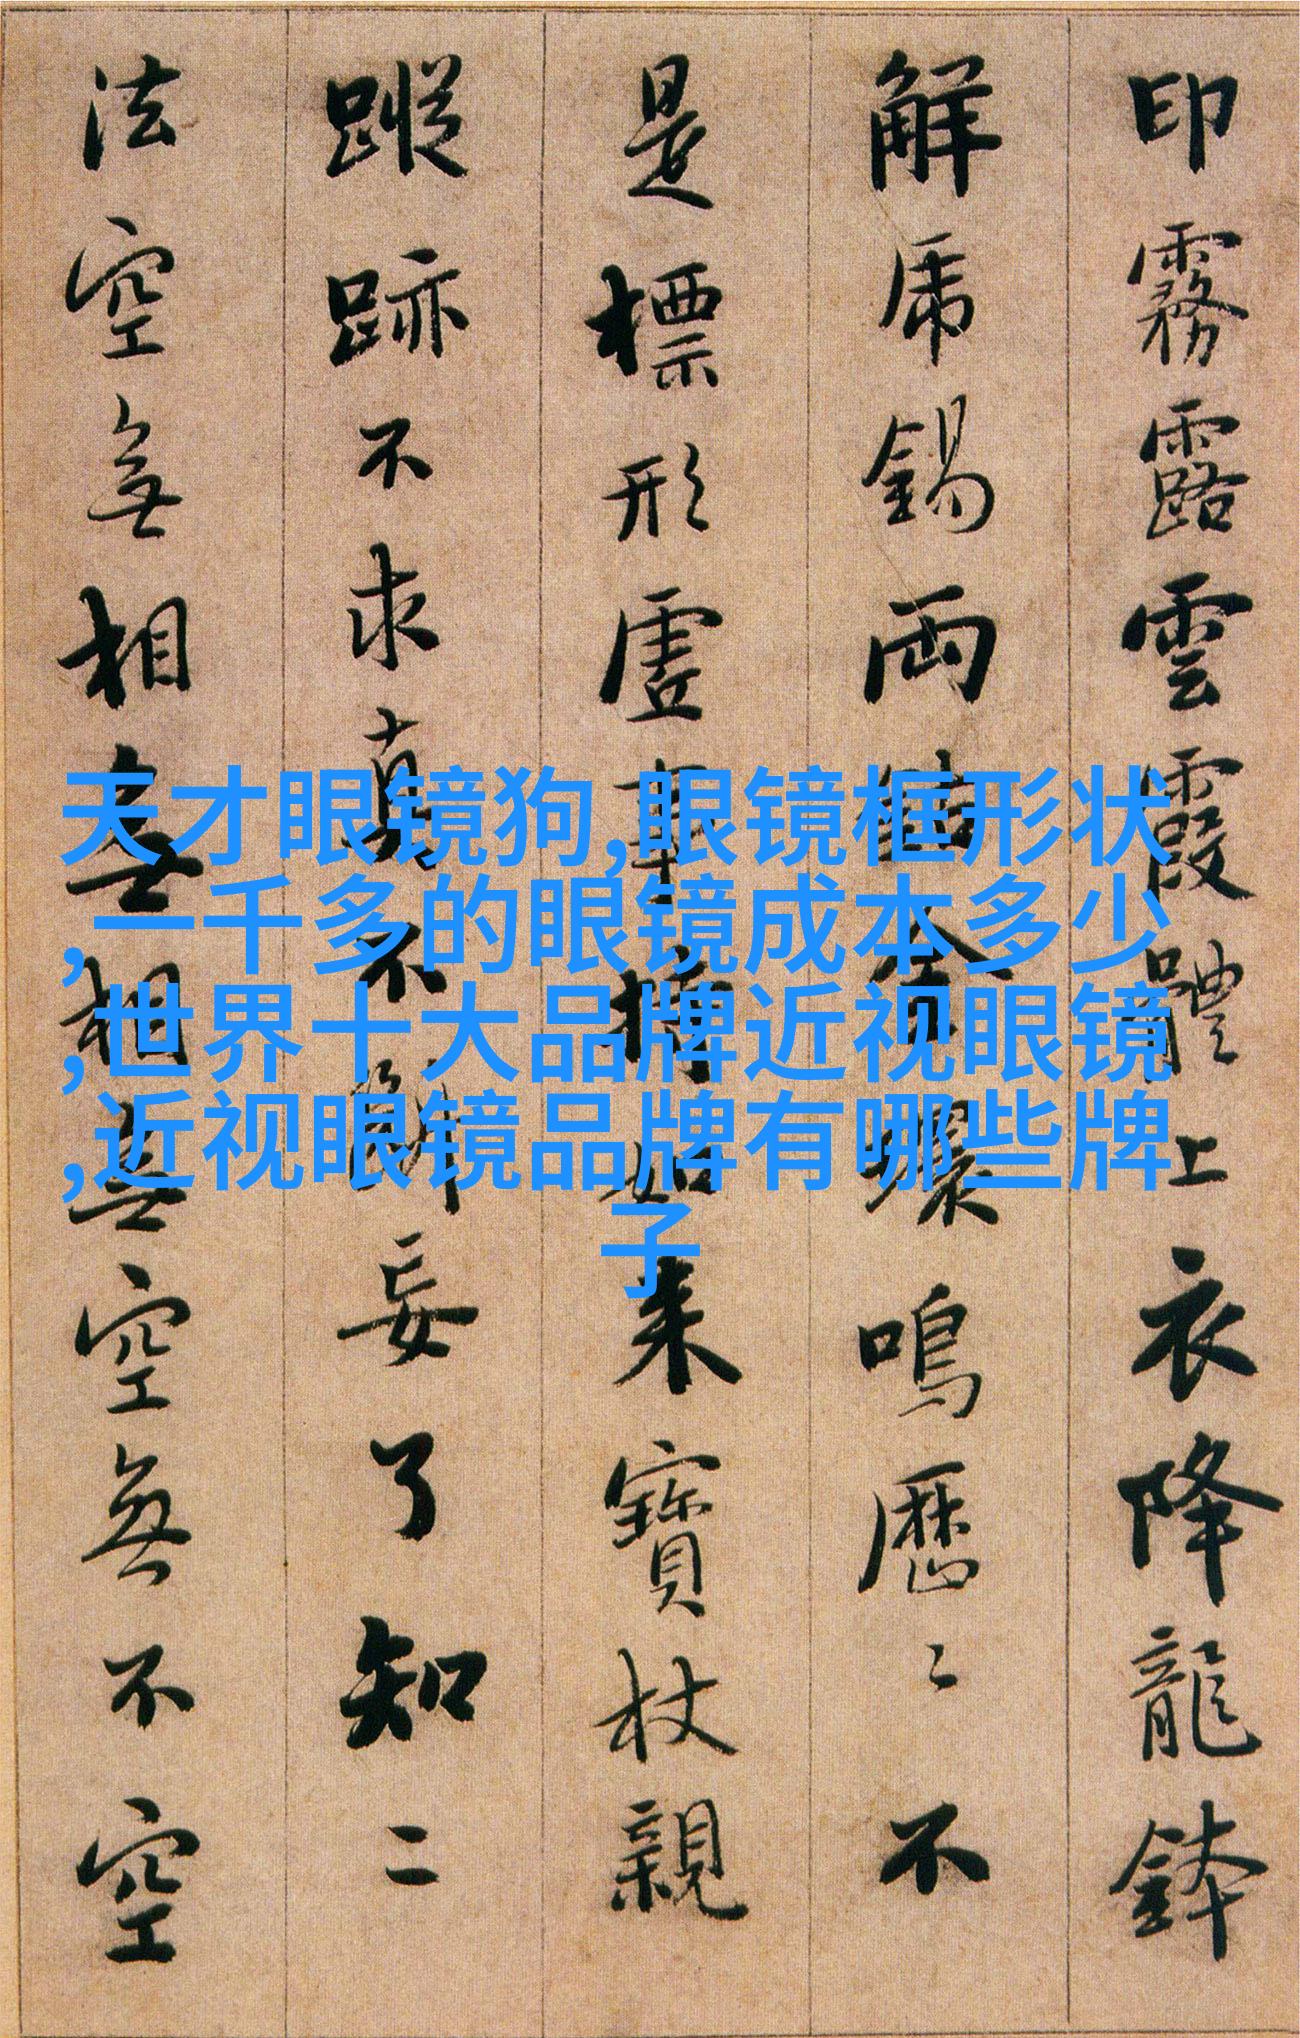 印霧露雲霞體上衣降龍鉢
解虎錫兩鈷金環鳴歷〻不
是標形虛事持如来寶杖親
蹤跡不求真不斷妄了知二
法空無相無相無空無不空
天才眼镜狗,眼镜框形状
,一千多的眼镜成本多少
,世界十大品牌近视眼镜
,近视眼镜品牌有哪些牌
子